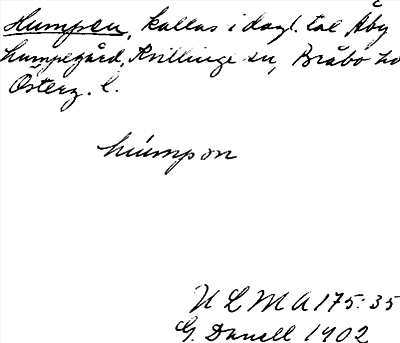 Humpen, kallas i dagl. tal Åby
humpegård, Kvillinge sn, Bråbo hd
Österg. l.
húmpon
ULMA 175:35
G. Danell 1902